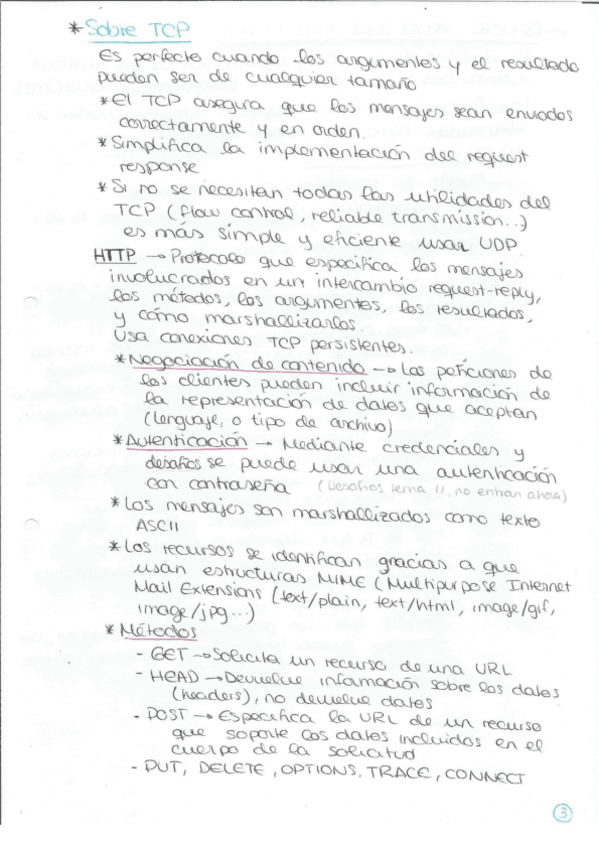 * Sobre TCP
Es perfecto cuando los argumentos y el resultado
pueden ser de cualquier tamaño
* El TCP asegura que los mensajes sean enviados
correctamente y en orden.
* Simplifica la implementación del request
response
* Si no se necesitan todas las utilidades del
TCP (flow control, reliable transmission...)
es más simple y eficiente usar UDP
HTTP → Protocolo que especifica los mensajes
involucrados en un intercambio request-reply,
los métodos, los argumentos, los resultados,
y cómo marshallizarlos.
Usa conexiones TCP persistentes.
* Negociación de contenido → Las peticiones de
los clientes pueden incluir información de
la representación de datos que aceptan
(lenguaje, o tipo de archivo)
* Autenticación → Mediante credenciales y
desafíos se puede usar una autenticación
con contraseña (Desafíos tema 11, no entran ahora)
* Los mensajes son marshallizados como texto
ASCII
* Los recursos se identifican gracias a que
usan estructuras MIME (Multipurpose Internet
Mail Extensions (text/plain, text/html, image/gif,
image/jpg...)
* Métodos
- GET → Solicita un recurso de una URL
- HEAD → Devuelve información sobre los datos
(headers), no devuelve datos
- POST → Especifica la URL de un recurso
que soporte los datos incluidos en el
cuerpo de la solicitud
- PUT, DELETE, OPTIONS, TRACE, CONNECT
3